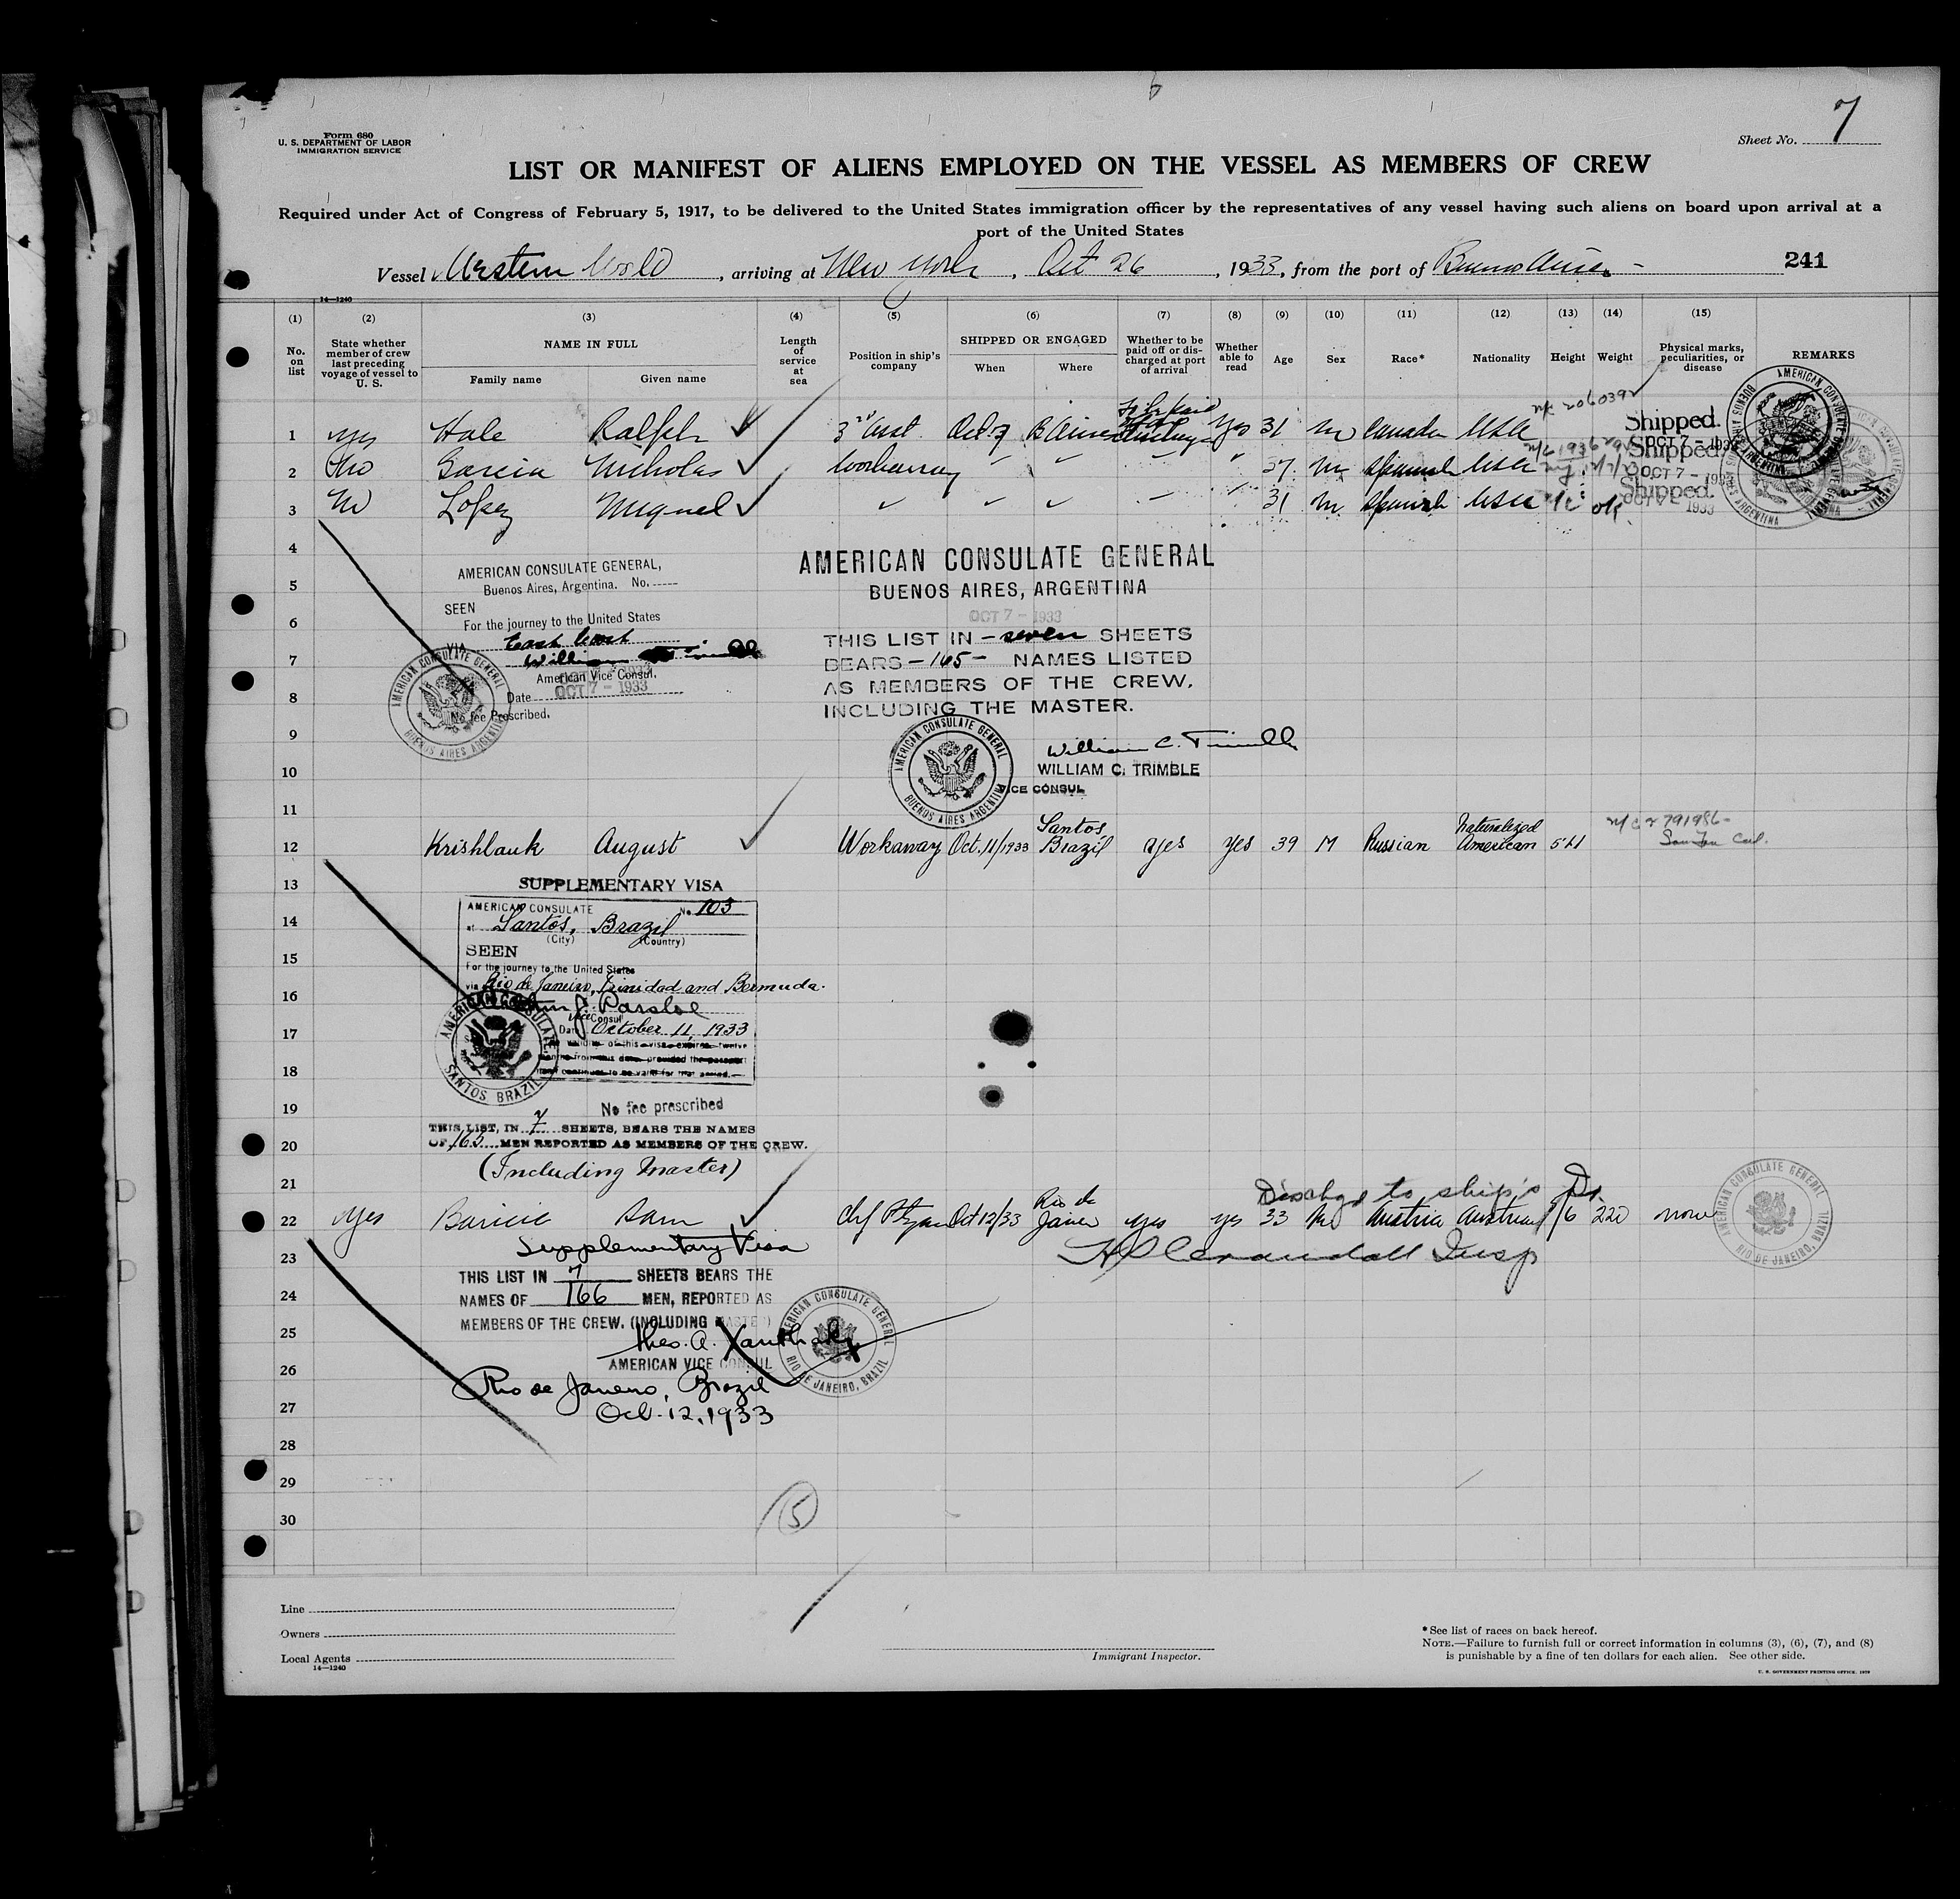 7
Form 680
U. S. DEPARTMENT OF LABOR
IMMIGRATION SERVICE
Sheet No. 7
LIST OR MANIFEST OF ALIENS EMPLOYED ON THE VESSEL AS MEMBERS OF CREW
Required under Act of Congress of February 5, 1917, to be delivered to the United States immigration officer by the representatives of any vessel having such aliens on board upon arrival at a
port of the United States
Vessel Western World, arriving at New York, Oct 26, 1933, from the port of Buenos Aires - 241
14—1240
(1) (2) (3) (4) (5) (6) (7) (8) (9) (10) (11) (12) (13) (14) (15)
No. on list State whether member of crew last preceding voyage of vessel to U. S. NAME IN FULL Family name Given name Length of service at sea Position in ship's company SHIPPED OR ENGAGED When Where Whether to be paid off or discharged at port of arrival Whether able to read Age Sex Race* Nationality Height Weight Physical marks, peculiarities, or disease REMARKS
1 yes Hale Ralph 3rd Asst Oct. 7 B Aires To be paid Yes 31 M Canada USA Shipped. OCT 7 - 1933
2 No Garcia Nicholas Workaway " " " 37 M Spanish USA Shipped. OCT 7 - 1933
3 No Lopez Miguel " " " " 31 M Spanish USA ok. Shipped. 1933
4
AMERICAN CONSULATE GENERAL,
Buenos Aires, Argentina. No.
SEEN
For the journey to the United States
VIA East Coast
William
American Vice Consul.
Date OCT 7 - 1933
No fee Prescribed.
AMERICAN CONSULATE GENERAL BUENOS AIRES ARGENTINA
AMERICAN CONSULATE GENERAL
BUENOS AIRES, ARGENTINA
OCT 7 - 1933
THIS LIST IN - seven SHEETS
BEARS - 165 - NAMES LISTED
AS MEMBERS OF THE CREW.
INCLUDING THE MASTER.
William C. Trimble
WILLIAM C. TRIMBLE
VICE CONSUL
AMERICAN CONSULATE GENERAL BUENOS AIRES ARGENTINA
5
6
7
8
9
10
11
12 Krishlauk August Workaway Oct. 11/1933 Santos, Brazil yes yes 39 M Russian Naturalized American 5'11 N/C 2791986 - San Fran Cal.
13
SUPPLEMENTARY VISA
AMERICAN CONSULATE No. 103
at Santos, Brazil
(City) (Country)
SEEN
For the journey to the United States
via Rio de Janeiro, Trinidad and Bermuda.
Vice Consul
Date October 11, 1933
Validity of this visa expires twelve
months from this date provided the passport
itself continues to be valid for that period.
AMERICAN CONSULATE SANTOS BRAZIL
No fee prescribed
THIS LIST, IN 7 SHEETS, BEARS THE NAMES
OF 165 MEN REPORTED AS MEMBERS OF THE CREW.
(Including Master)
14
15
16
17
18
19
20
21
Dischgd to ship's Dr.
22 yes Sam Oct 12/33 Rio de Janeiro yes yes 33 M Austria Austrian 6 220 none
AMERICAN CONSULATE GENERAL RIO DE JANEIRO, BRAZIL
Crandall Insp
Supplementary Visa
THIS LIST IN 7 SHEETS BEARS THE
NAMES OF 166 MEN, REPORTED AS
MEMBERS OF THE CREW. (INCLUDING MASTER)
Theo. A. Xanthaky
AMERICAN VICE CONSUL
Rio de Janeiro, Brazil
Oct. 12, 1933
AMERICAN CONSULATE GENERAL RIO DE JANEIRO, BRAZIL
23
24
25
26
27
28
29
30
5
Line
Owners
Local Agents
14—1240
Immigrant Inspector.
*See list of races on back hereof.
NOTE.—Failure to furnish full or correct information in columns (3), (6), (7), and (8)
is punishable by a fine of ten dollars for each alien. See other side.
U. S. GOVERNMENT PRINTING OFFICE: 1929